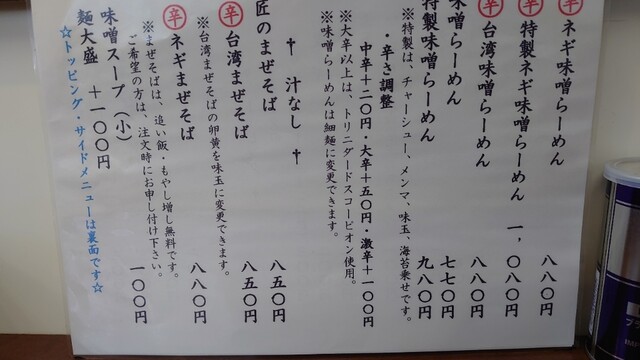 辛 ネギ味噌らーめん 八八〇円
辛 特製ネギ味噌らーめん 一、〇八〇円
辛 台湾味噌らーめん 八八〇円
味噌らーめん 七七〇円
特製味噌らーめん 九八〇円
※特製は、チャーシュー、メンマ、味玉、海苔乗せです。
・辛さ調整
中辛+二〇円・大辛+五〇円・激辛+一〇〇円
※大辛以上は、トリニダードスコーピオン使用。
※味噌らーめんは細麺に変更できます。
† 汁なし †
匠のまぜそば 八五〇円
辛 台湾まぜそば 八五〇円
※台湾まぜそばの卵黄を味玉に変更できます。
辛 ネギまぜそば 八八〇円
※まぜそばは、追い飯・もやし増し無料です。
ご希望の方は、注文時にお申し付け下さい。
味噌スープ(小) 一〇〇円
麺大盛 +一〇〇円
☆トッピング・サイドメニューは裏面です☆